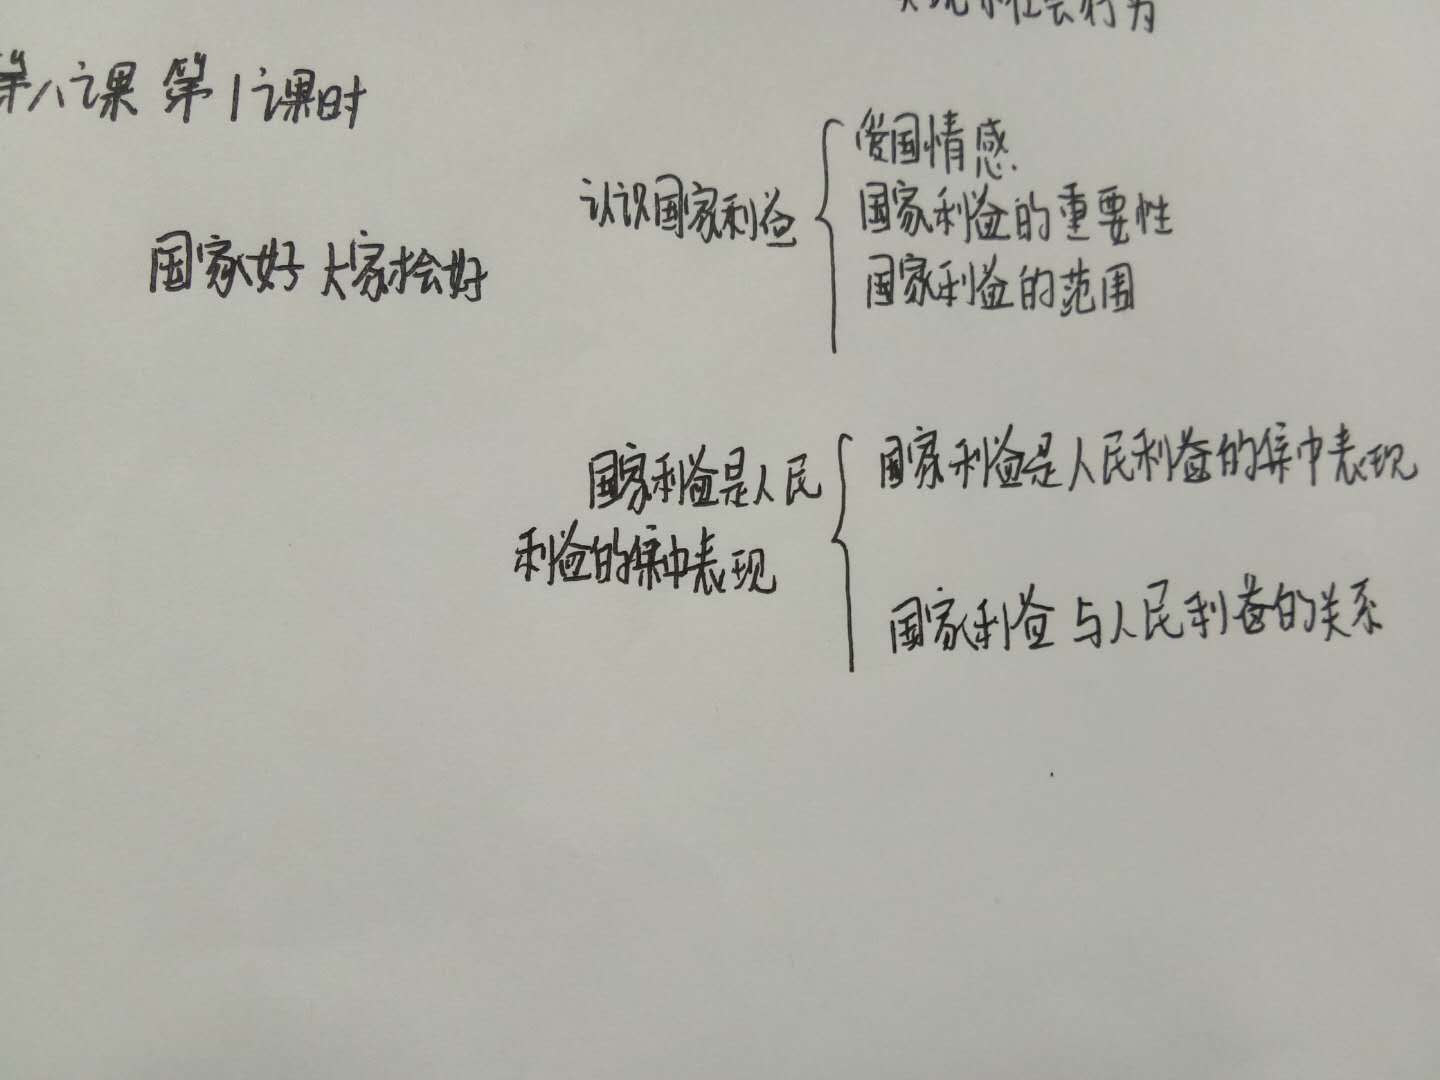 社会行为
第八课 第1课时
国家好 大家才会好
认识国家利益
爱国情感
国家利益的重要性
国家利益的范围
国家利益是人民
利益的集中表现
国家利益是人民利益的集中表现
国家利益与人民利益的关系